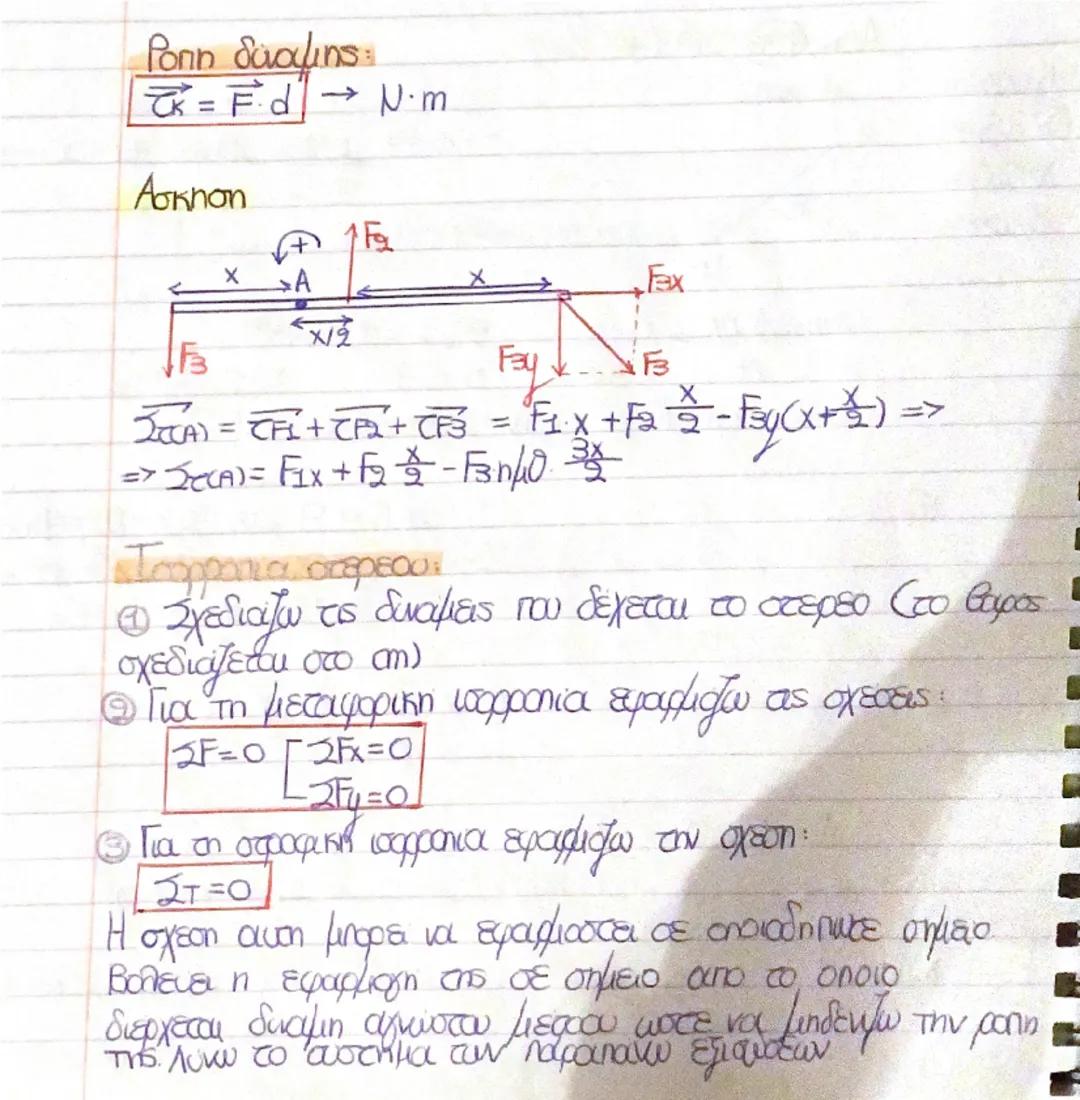 Ροπη δυναμης:
τK = F · d → N·m
Ασκηση
+ F2
x A x F3x
x/2
F3 F3y F3
Στ(A) = τF1 + τF2 + τF3 = F1·x + F2 x/2 - F3y(x+x/2) =>
=> Στ(A) = F1x + F2 x/2 - F3ημθ · 3x/2
Ισορροπια στερεου:
① Σχεδιαζω τις δυναμεις που δεχεται το στερεο (το βαρος
σχεδιαζεται στο cm)
② Για τη μεταφορικη ισορροπια εφαρμοζω τις σχεσεις:
ΣF=0 [ ΣFx=0
ΣFy=0
③ Για τη στροφικη ισορροπια εφαρμοζω την σχεση:
Στ=0
Η σχεση αυτη μπορει να εφαρμοστει σε οποιοδηποτε σημειο
Βολευει η εφαρμογη της σε σημειο απο το οποιο
διερχεται δυναμη αγνωστου μετρου ωστε να μηδενιζω την ροπη
της. Λυνω το συστημα των παραπανω εξισωσεων